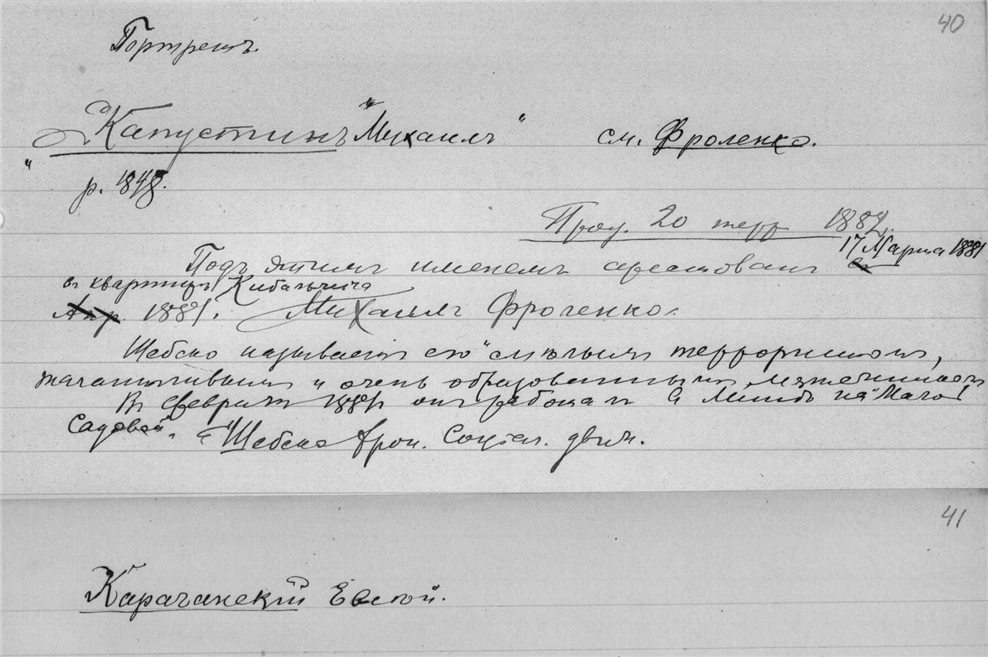 40
Портретъ
"Капустинъ "Михаилъ" см. Фроленко.
р. 1848.
Проц. 20 терр 1882.
Подъ этимъ именемъ арестованъ 17 Марта 1881
въ квартирѣ Кибальчича
Апр. 1881. Михаилъ Фроленко.
Шебеко называетъ его "смѣлымъ террористомъ,
талантливымъ и очень образованнымъ мятежникомъ
Въ февралѣ 1881 онъ работалъ въ Минѣ на "Малой
Садовой". Шебеко Хрон. Соціал. движ.
41
Карачанскій Евсей.